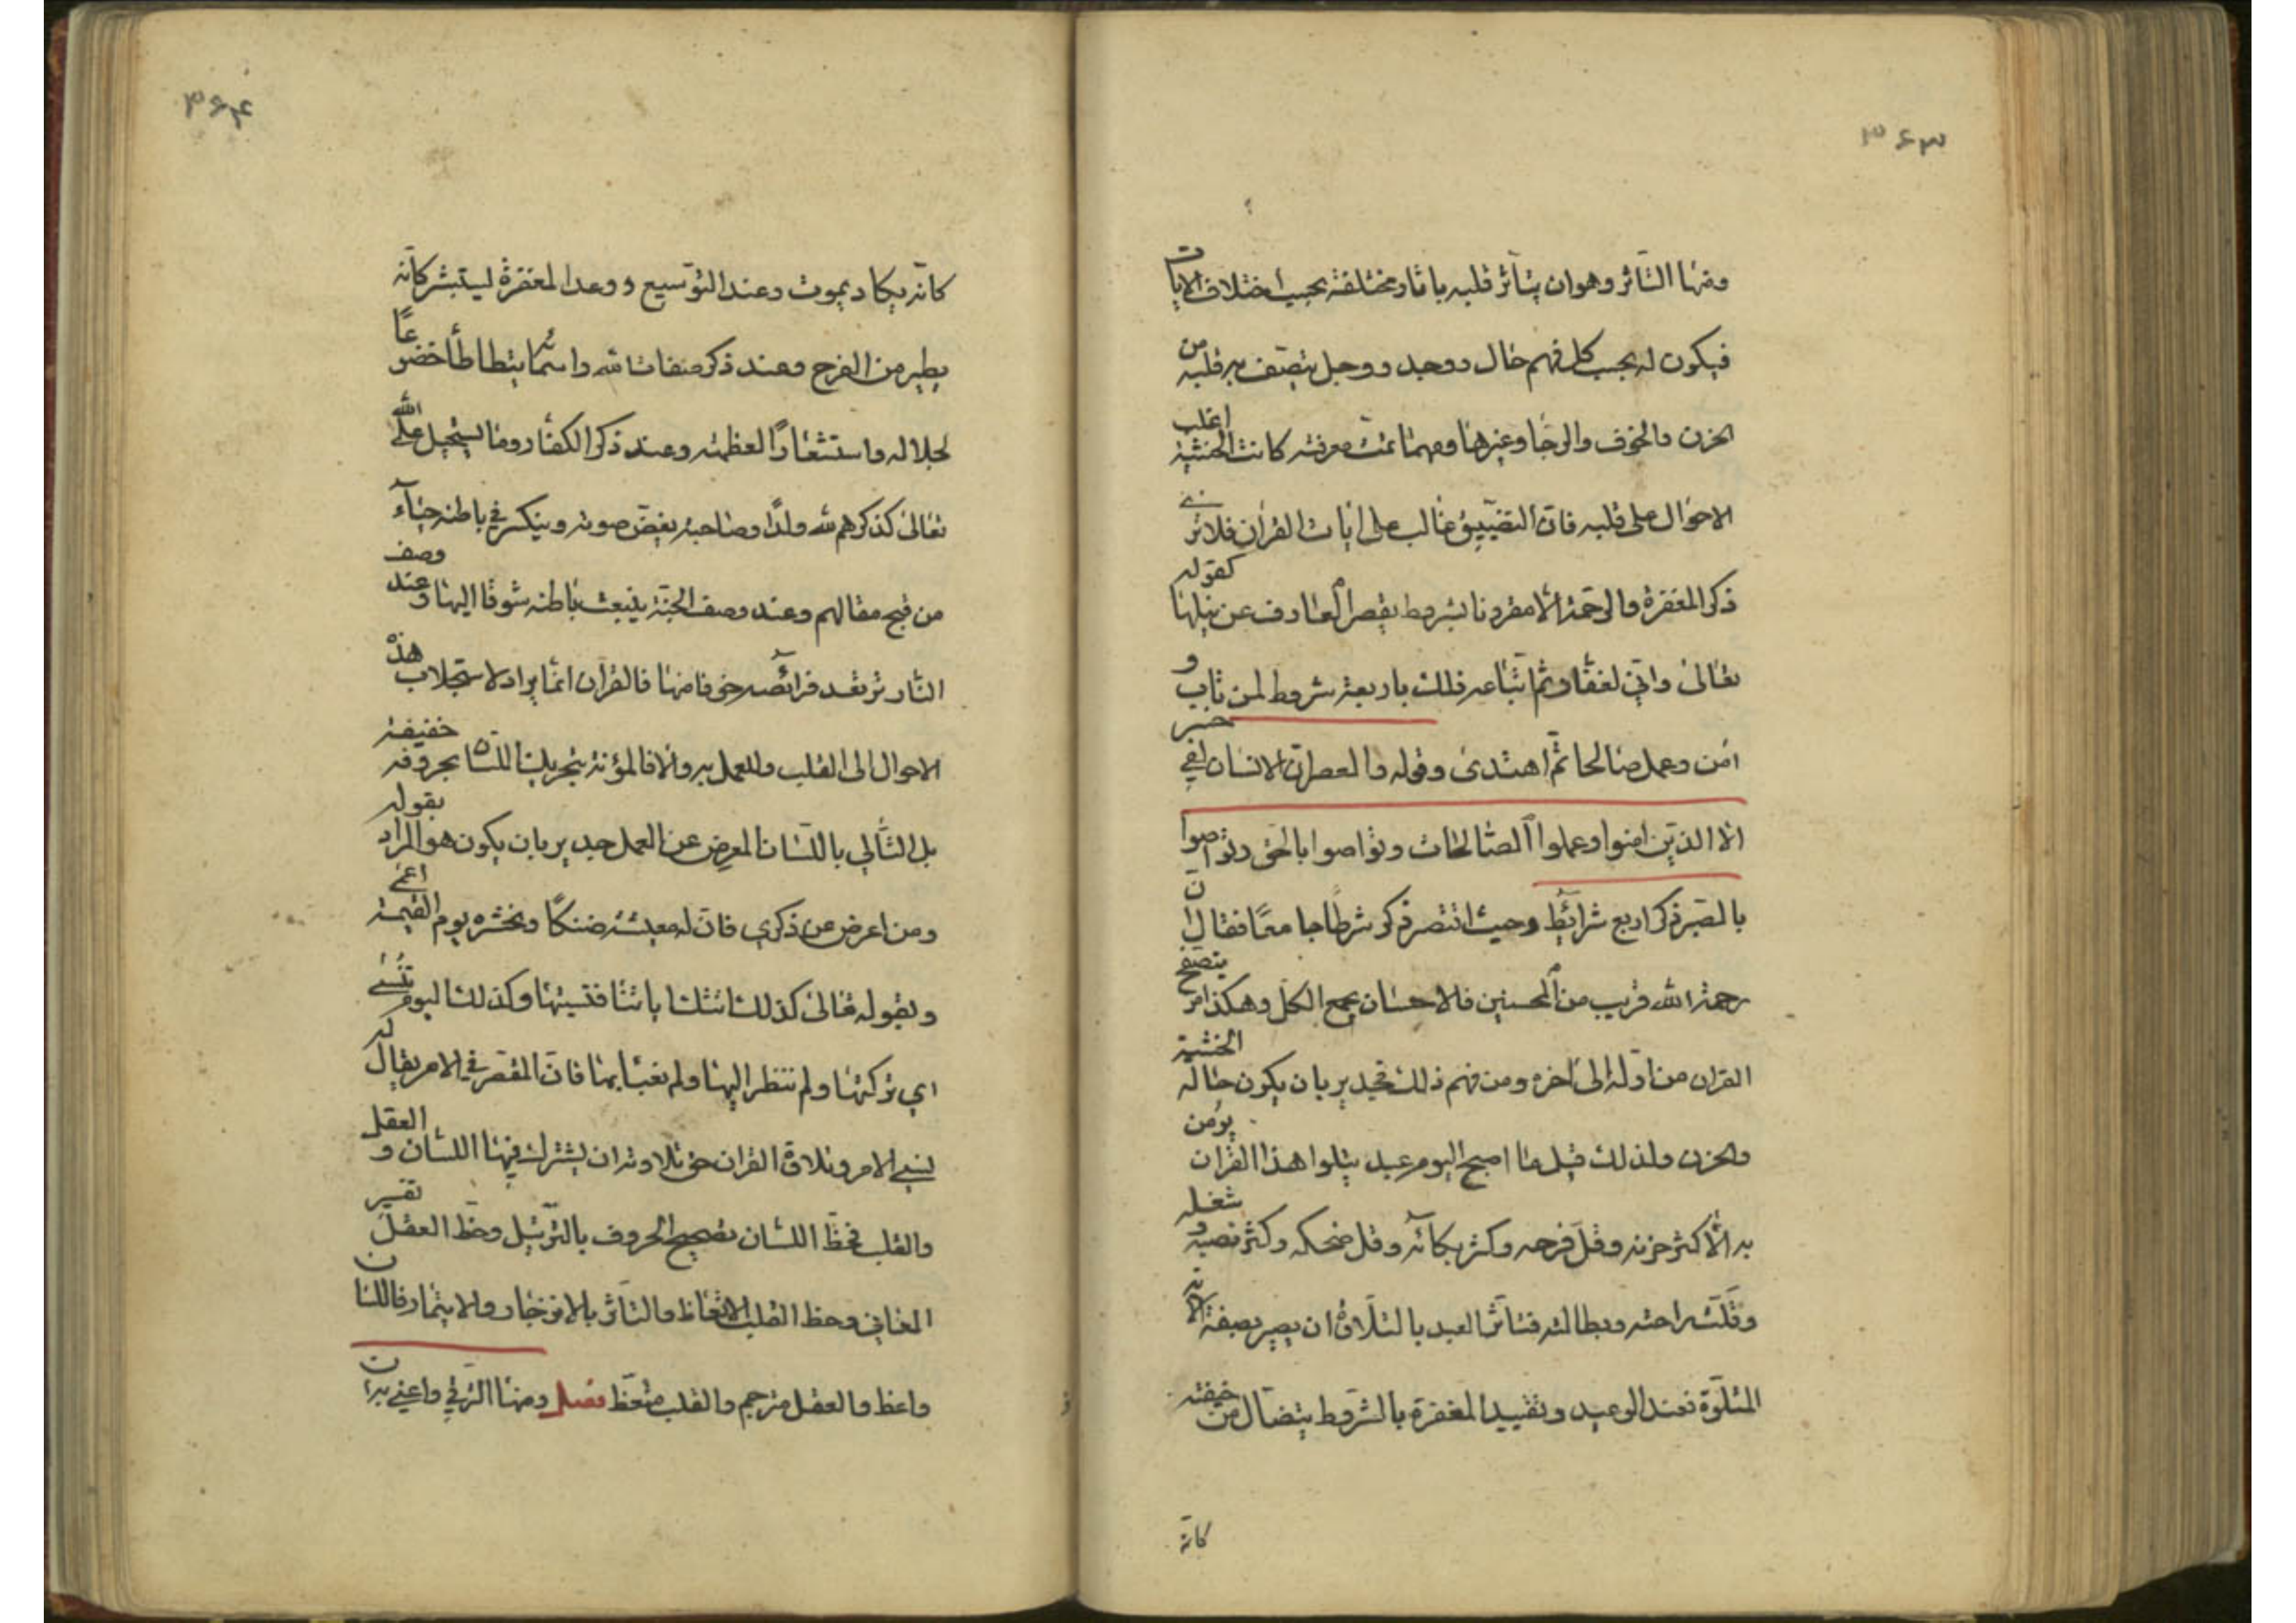 ۳۶۳
ومنها التأثر وهو ان يتأثر قلبه باثار مختلفة بحسب اختلاف الايات
فيكون له بحسب كل فهم حال ووجد ووجل يتصف به قلبه من
الحزن والخوف والرجا وغيرها ومهما تمت معرفته كانت الخشية اغلب
الاحوال على قلبه فان التضييق غالب على ايات القران فلا ترى
ذكر المغفرة والرحمة الا مقرونا بشروط يقصر العارف عن نيلها كقوله
تعالى واني لغفار ثم اتباعه ذلك باربعة شروط لمن تاب و
امن وعمل صالحا ثم اهتدى وقوله والعصر ان الانسان لفي خسر
الا الذين امنوا وعملوا الصالحات وتواصوا بالحق وتواصوا
بالصبر ذكر اربع شرائط وحيث اقتصر ذكر شرطا جامعا فقال ان
رحمة الله قريب من المحسنين فالاحسان يجمع الكل وهكذا من يتصفح
القران من اوله الى اخره ومن فهم ذلك فجدير بان يكون حاله الخشية
والحزن ولذلك قيل ما اصبح اليوم عبد يتلوا هذا القران يؤمن
به الا كثر حزنه وقل فرحه وكثر بكائه وقل ضحكه وكثر نصبه و شغله
وقلت راحته وبطالته فتأثر العبد بالتلاوة ان يصير بصفة الاية
المتلوة فعند الوعيد وتقييد المغفرة بالشروط يتضأل من خيفته
كانه
۳۶۴
كانه يكاد يموت وعند التوسيع و وعد المغفرة يستبشر كانه
يطير من الفرح وعند ذكر صفات الله واسمائه يتطاطأ خضوعا
لجلاله واستشعارا لعظمته وعند ذكر الكفار وما يستحيل على الله
تعالى كذكرهم لله ولدا وصاحبة يغض صوته وينكسر في باطنه حياء
من قبح مقالهم وعند وصف الجنة ينبعث باطنه شوقا اليها وعند وصف
النار ترتعد فرائصه خوفا منها فالقران انما يراد لاستجلاب هذه
الاحوال الى القلب وللعمل به والا فالمؤنة بتحريك اللسان بحروفه خفيفة
بل التالي باللسان المعرض عن العمل جدير بان يكون هو المراد بقوله
ومن اعرض عن ذكري فان له معيشة ضنكا ونحشره يوم القيمة اعمى
وبقوله تعالى كذلك اتتك اياتنا فنسيتها وكذلك اليوم تنسى
اي تركتها ولم تنظر اليها ولم تعبأ بها فان المقصر في الامر يقال له
نسي الامر وتلاوة القران حق تلاوته ان يشترك فيها اللسان و العقل
والقلب فحظ اللسان تصحيح الحروف بالترتيل وحظ العقل تفسير
المعاني وحظ القلب الاتعاظ والتأثر بالانزجار والايتمار فاللسان
واعظ والعقل مترجم والقلب متعظ فصل ومنها الترقي واعني به ان